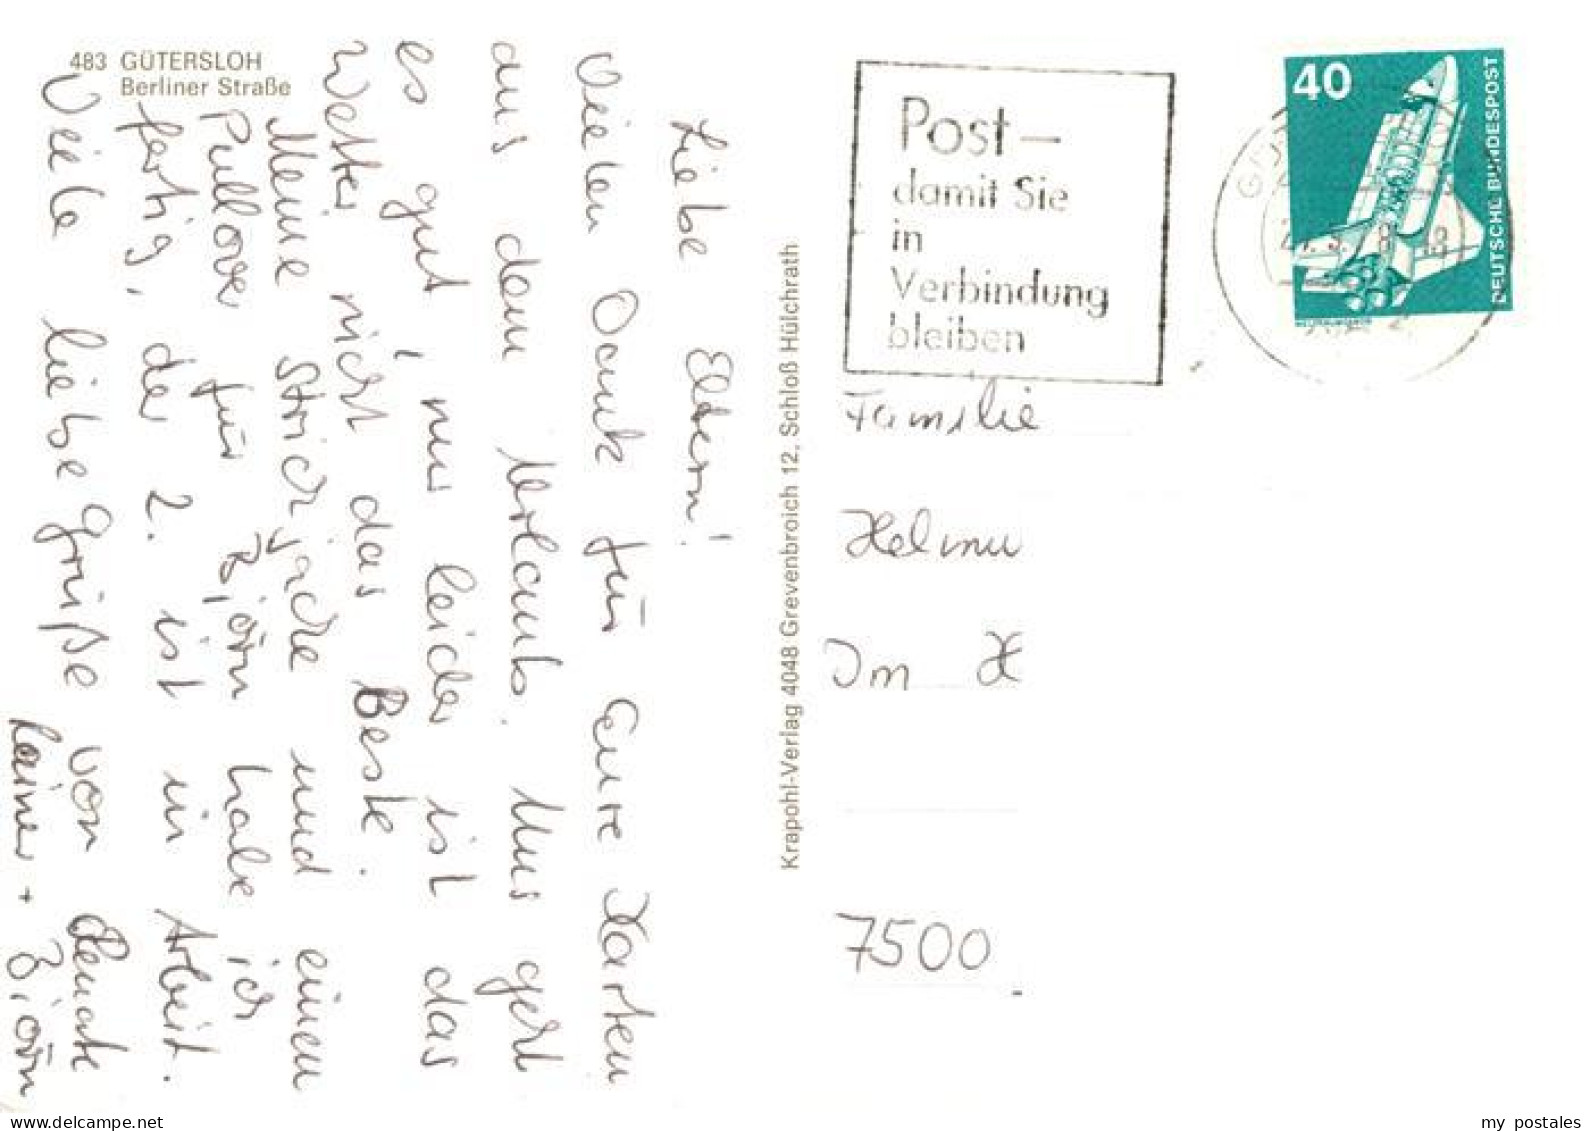 483 GÜTERSLOH
Berliner Straße
Liebe Eltern!
Vielen Dank für Eure Karten
aus dem Urlaub. Uns geht
es gut, nur leider ist das
Wetter nicht das Beste.
Meine Strickjacke und einen
Pullover für Björn habe ich
fertig, der 2. ist in Arbeit.
Viele liebe Grüße von Renate
Rainer + Björn
Krapohl-Verlag 4048 Grevenbroich 12, Schloß Hülchrath
Post –
damit Sie
in
Verbindung
bleiben
40
DEUTSCHE BUNDESPOST
Familie
Helmu
Im
7500
my postales